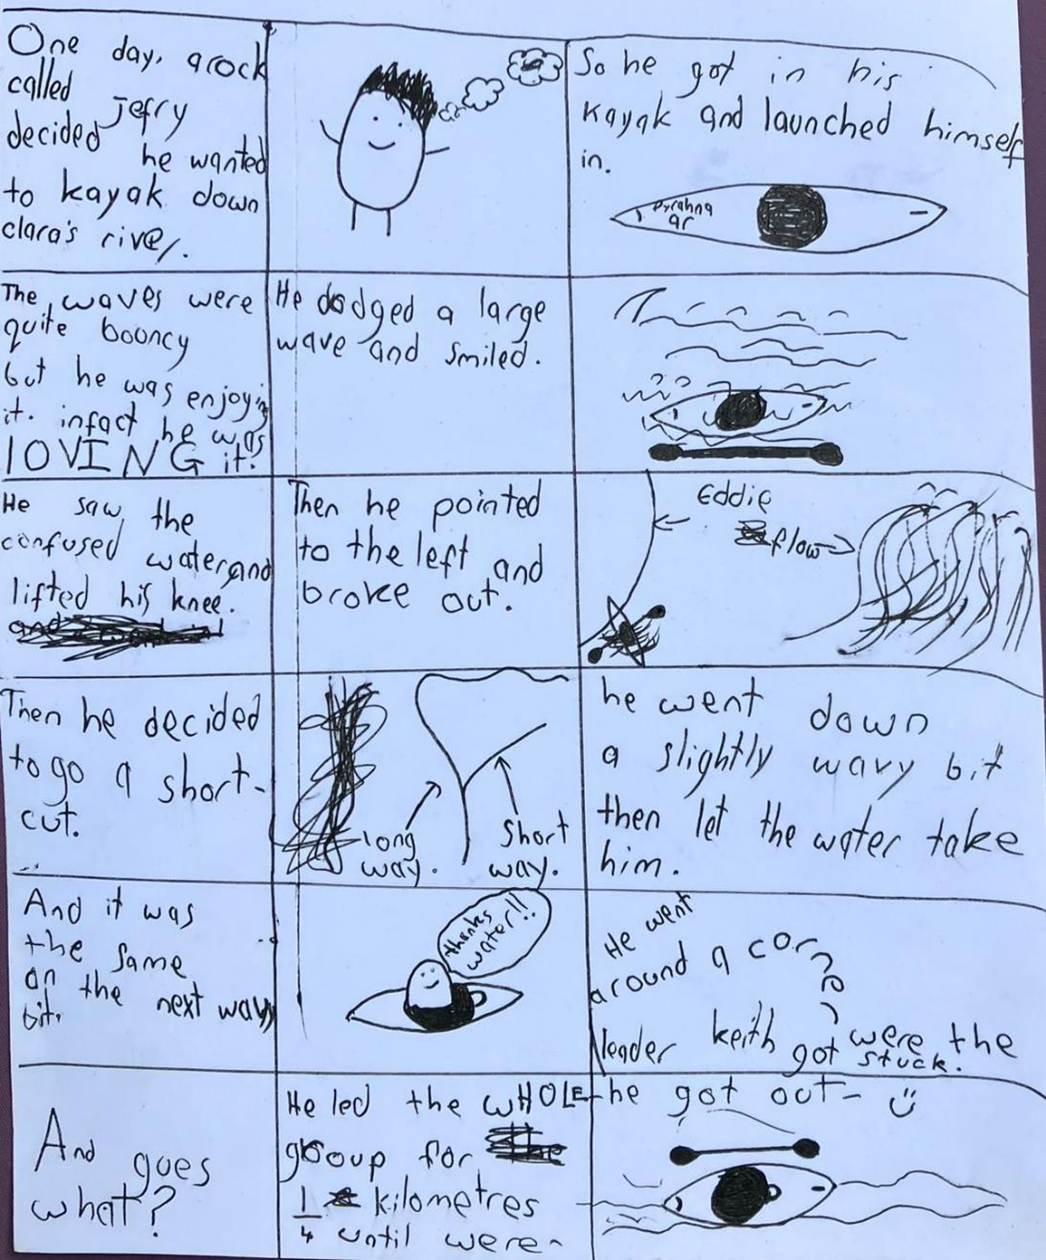 One day, a rock
called Jefry
decided he wanted
to kayak down
clara's river.
So he got in his
kayak and launched himself
in.
Pyrahna
ar
The waves were
quite booncy
but he was enjoying
it. infact he was
LOVING it!
He dodged a large
wave and smiled.
He saw the
confused water and
lifted his knee.
Then he pointed
to the left and
broke out.
Eddie
flow
Then he decided
to go a short-
cut.
long
way.
short
way.
he went down
a slightly wavy bit
then let the water take
him.
And it was
the same
on the next wavy
bit.
thanks
water!!
He went
around a corner
were the
leader keith got stuck.
And goes
what?
He led the WHOLE
group for
1/4 kilometres
until were-
he got out-